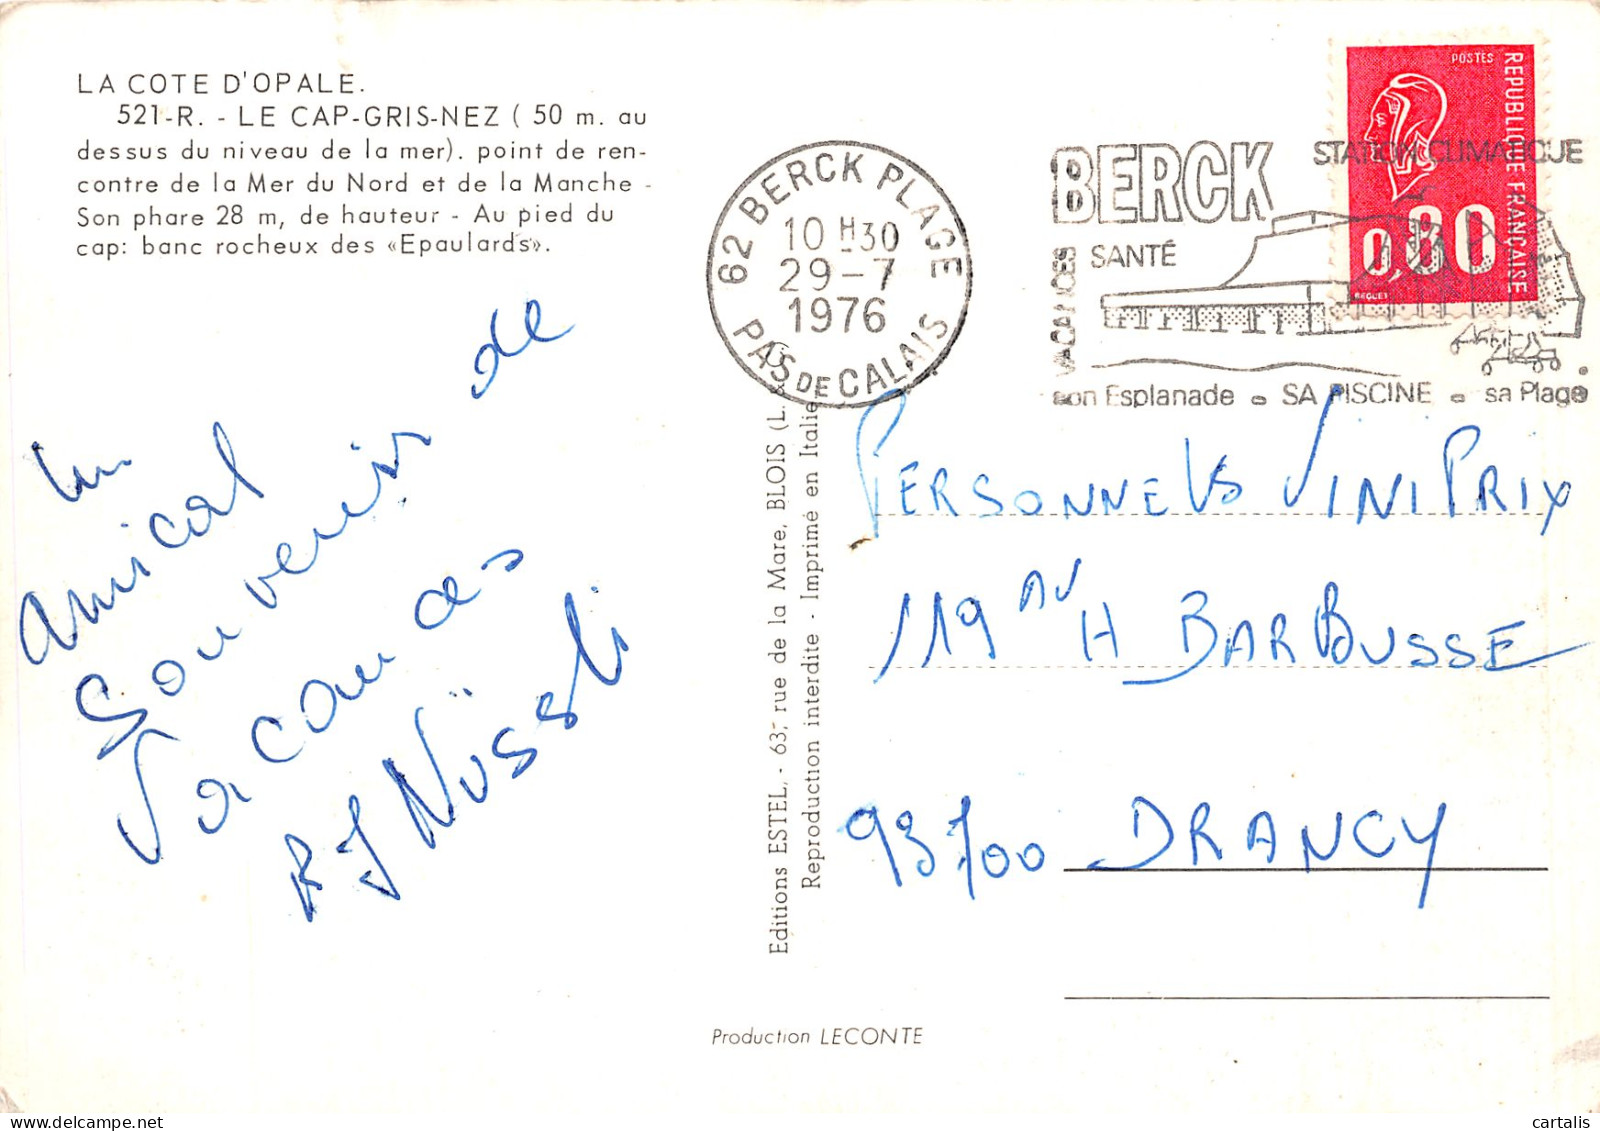 LA COTE D'OPALE.
521-R. - LE CAP-GRIS-NEZ ( 50 m. au
dessus du niveau de la mer). point de ren-
contre de la Mer du Nord et de la Manche -
Son phare 28 m, de hauteur - Au pied du
cap: banc rocheux des «Epaulards».
Un
amical
Souvenir de
Vacances
R J Nüssli
Editions ESTEL, - 63, rue de la Mare, BLOIS (L.
Reproduction interdite - Imprimé en Italie
Production LECONTE
62 BERCK PLAGE
10 H30
29-7
1976
PAS DE CALAIS
BERCK
STATION CLIMATIQUE
VACANCES
SANTÉ
son Esplanade - SA PISCINE - sa Plage
POSTES
REPUBLIQUE FRANÇAISE
0,80
BEQUET
PERSONNELS VINIPRIX
119 AV H BARBUSSE
93700 DRANCY
cartalis